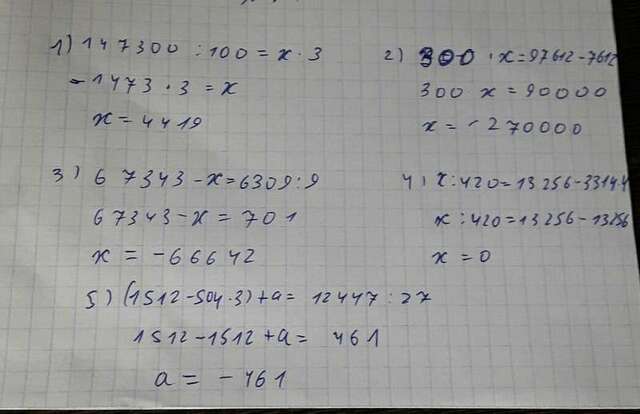 1) 147300 : 100 = x · 3
- 1473 · 3 = x
x = 4419
2) 300 · x = 97612 - 7612
300 x = 90000
x = - 270000
3) 67343 - x = 6309 : 9
67343 - x = 701
x = - 66642
4) x : 420 = 13256 - 33144
x : 420 = 13256 - 13256
x = 0
5) (1512 - 504 · 3) + a = 12447 : 27
1512 - 1512 + a = 461
a = - 461